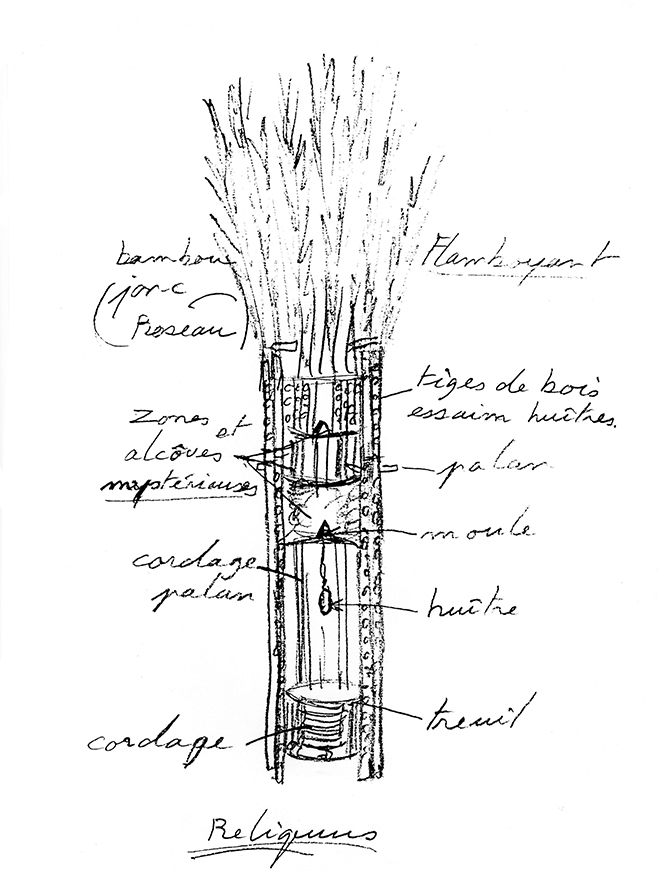 bambou
(jonc
Roseau)
Flamboyant
tiges de bois
essaim huîtres.
zones et
alcôves
mystérieuses
palan
moule
cordage
palan
huître
treuil
cordage